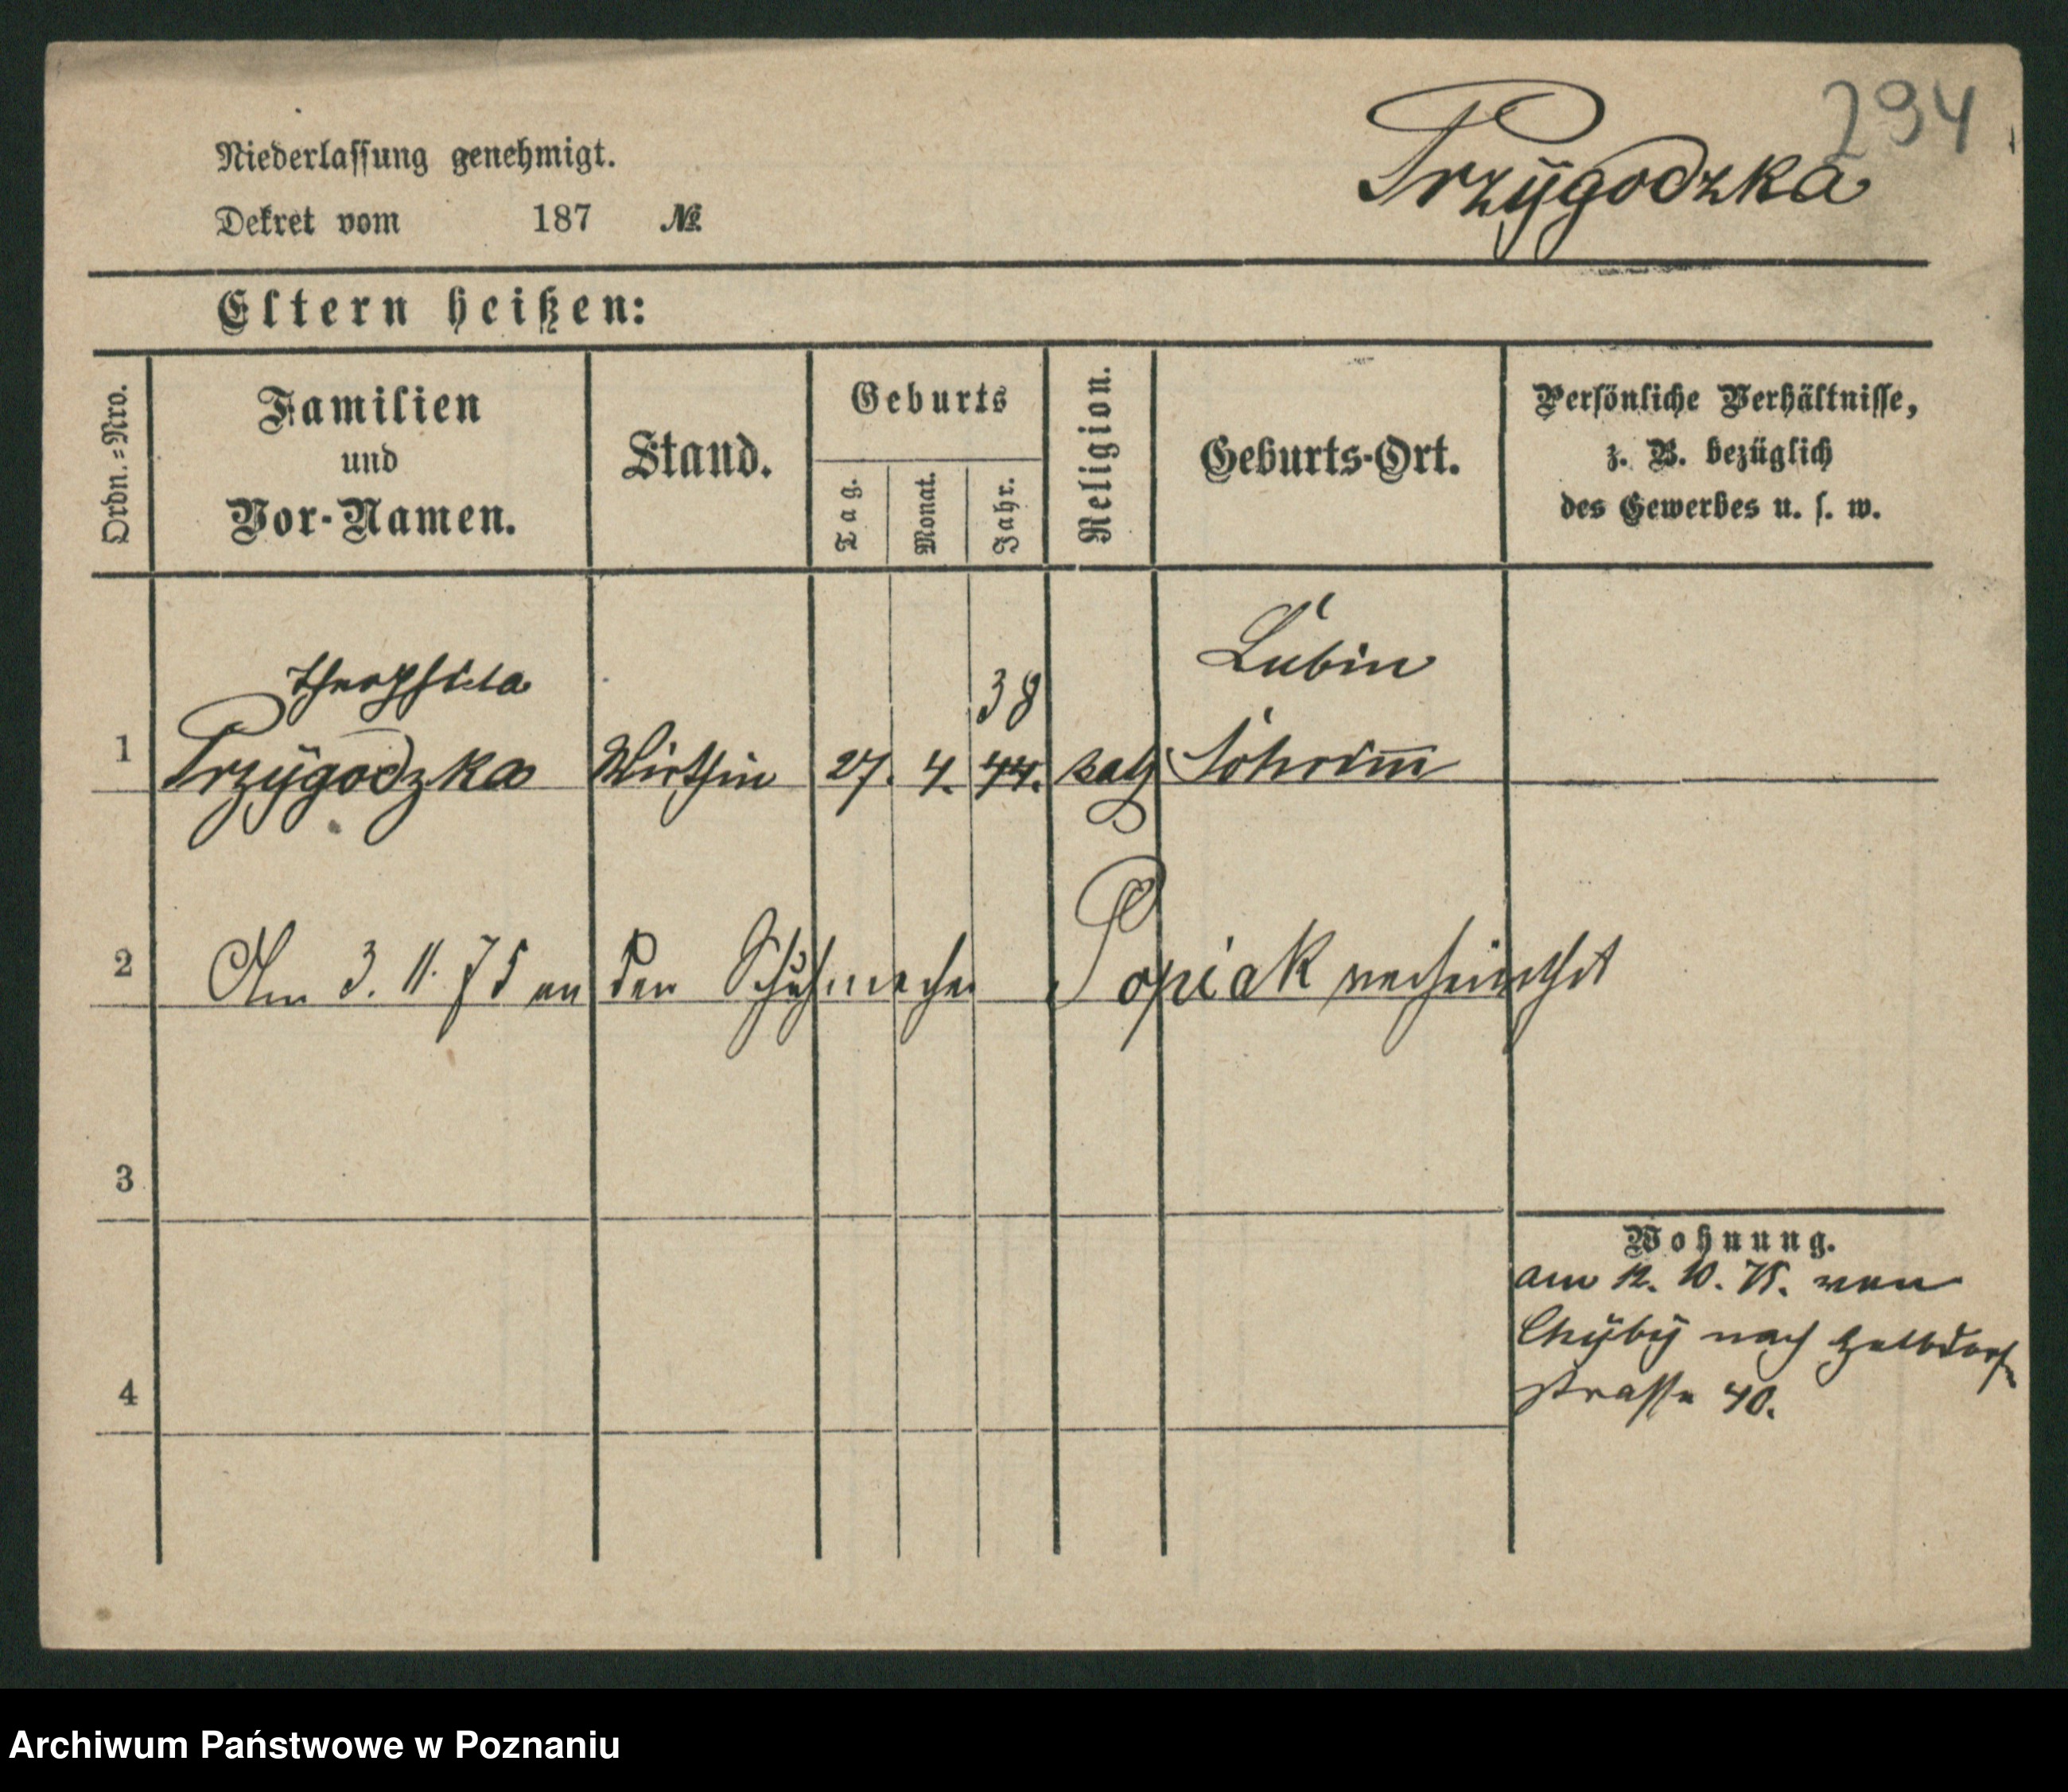 294
Niederlassung genehmigt.
Przÿgodzka
Dekret vom 187 №
Eltern heißen:
Ordn.=Nro.
Familien
und
Vor-Namen.
Stand.
Geburts
Tag.
Monat.
Jahr.
Religion.
Geburts-Ort.
Persönliche Verhältnisse,
z. B. bezüglich
des Gewerbes u. s. w.
Theophila
38
Lubin
1 Przÿgodzka Wirthin 27. 4. 44. kath Schrimm
2 Am 3. 11. 75 an den Schuhmacher Popiak verheirathet
3
Wohnung.
am 12. 10. 75. von
Chÿbÿ nach Halbdorf-
strasse 40.
4
Archiwum Państwowe w Poznaniu